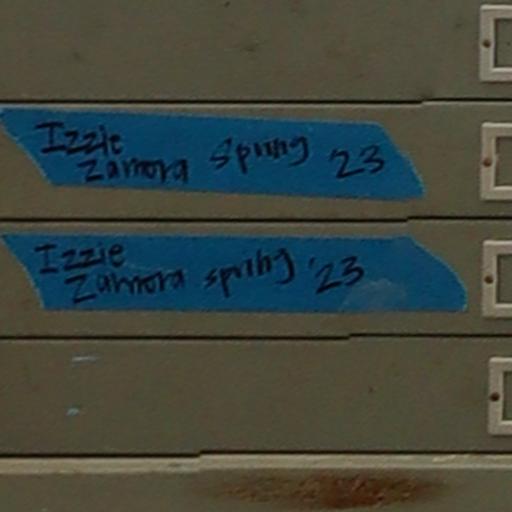 Izzie
Zamora Spring '23
Izzie
Zamora spring '23